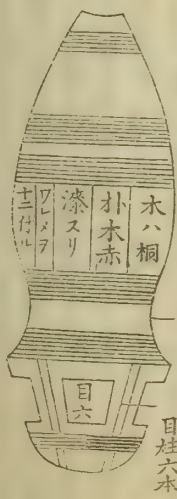 木ハ桐
朴木赤
漆スリ
ワレメヲ
十二付ル
目六
目柱六本